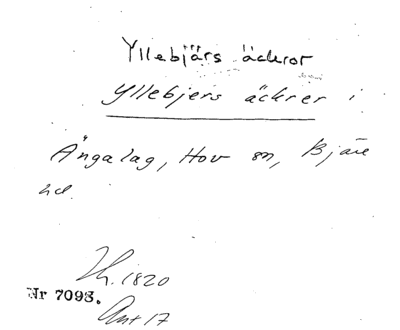 Yllebjärs äckror
Yllebjers äckrer i
Ängalag, Hov sn, Bjäre
hd.
1820
Nr 7093.
Akt 17